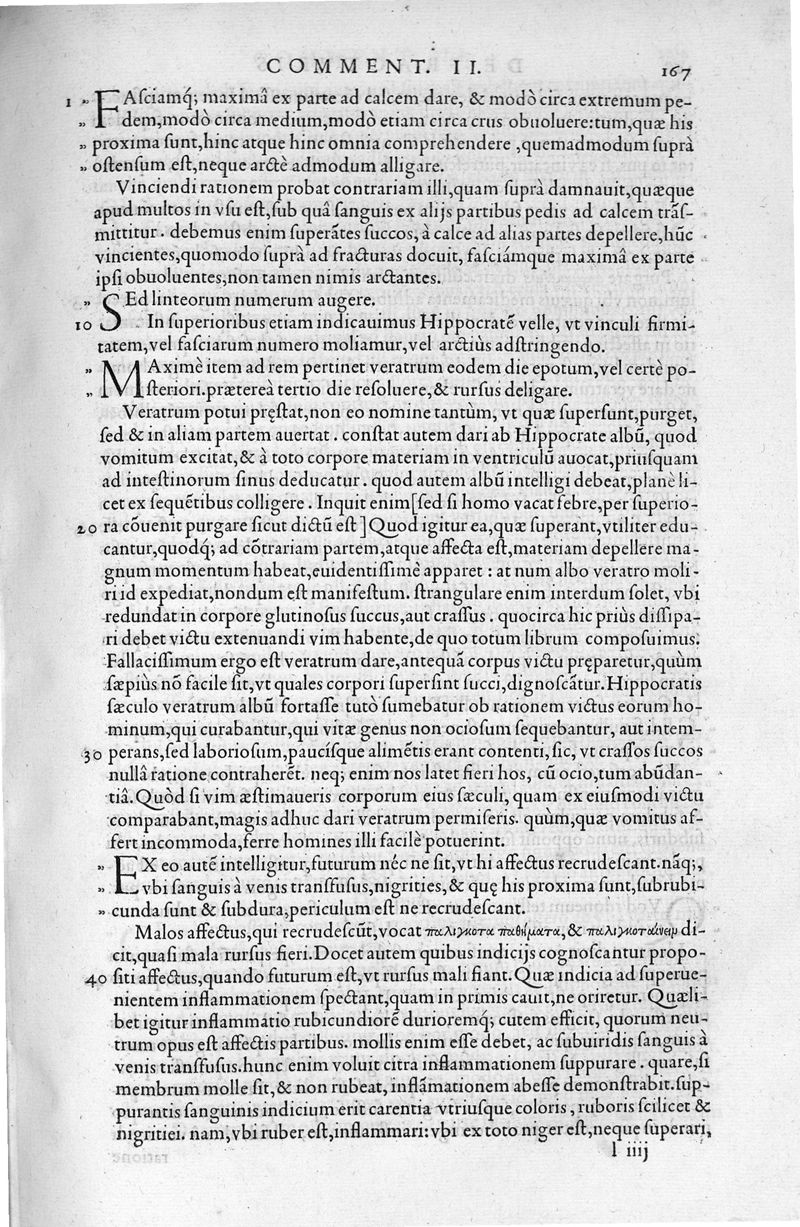 COMMENT. II. 167
1 „ FAſciamq́; maximâ ex parte ad calcem dare, & modò circa extremum pe-
„ dem,modò circa medium,modò etiam circa crus obuoluere:tum,quæ his
„ proxima ſunt,hinc atque hinc omnia comprehendere ,quemadmodum ſuprà
„ oſtenſum eſt,neque arctè admodum alligare.
Vinciendi rationem probat contrariam illi,quam ſuprà damnauit,quæque
apud multos in vſu eſt,ſub quâ ſanguis ex alijs partibus pedis ad calcem trãſ-
mittitur. debemus enim ſuperãtes ſuccos, à calce ad alias partes depellere,hũc
vincientes,quomodo ſuprà ad fracturas docuit, faſciámque maximâ ex parte
ipſi obuoluentes,non tamen nimis arctantes.
„ SEd linteorum numerum augere.
10 In ſuperioribus etiam indicauimus Hippocratẽ velle, vt vinculi firmi-
tatem,vel faſciarum numero moliamur,vel arctiùs adſtringendo.
„ MAximè item ad rem pertinet veratrum eodem die epotum,vel certè po-
„ ſteriori.præterеà tertio die reſoluere,& rurſus deligare.
Veratrum potui pręſtat,non eo nomine tantùm, vt quæ ſuperſunt,purget,
ſed & in aliam partem auertat. conſtat autem dari ab Hippocrate albũ, quod
vomitum excitat,& à toto corpore materiam in ventriculũ auocat,priuſquam
ad inteſtinorum ſinus deducatur. quod autem albũ intelligi debeat,planè li-
cet ex ſequẽtibus colligere. Inquit enim[ſed ſi homo vacat febre,per ſuperio-
20 ra cõuenit purgare ſicut dictũ eſt]Quod igitur ea,quæ ſuperant,vtiliter edu-
cantur,quodq́; ad cõtrariam partem,atque affecta eſt,materiam depellere ma-
gnum momentum habeat,euidentiſſimè apparet: at num albo veratro moli-
ri id expediat,nondum eſt manifeſtum. ſtrangulare enim interdum ſolet, vbi
redundat in corpore glutinoſus ſuccus,aut craſſus. quocirca hic priùs diſſipa-
ri debet victu extenuandi vim habente,de quo totum librum compoſuimus.
Fallaciſſimum ergo eſt veratrum dare,antequã corpus victu pręparetur,quùm
ſæpiùs nõ facile ſit,vt quales corpori ſuperſint ſucci,dignoſcãtur.Hippocratis
ſæculo veratrum albũ fortaſſe tutò ſumebatur ob rationem victus eorum ho-
minum,qui curabantur,qui vitæ genus non ocioſum ſequebantur, aut intem-
30 perans,ſed laborioſum,paucíſque alimẽtis erant contenti,ſic, vt craſſos ſuccos
nullâ ratione contraherẽt. neq; enim nos latet fieri hos, cũ ocio,tum abũdan-
tiâ.Quòd ſi vim æſtimaueris corporum eius ſæculi, quam ex eiuſmodi victu
comparabant,magis adhuc dari veratrum permiſeris. quùm,quæ vomitus af-
fert incommoda,ferre homines illi facilè potuerint.
„ EX eo autẽ intelligitur,futurum néc ne ſit,vt hi affectus recrudeſcant.nãq;,
„ vbi ſanguis à venis tranſfuſus,nigrities,& quę his proxima ſunt,ſubrubi-
„ cunda ſunt & ſubdura,periculum eſt ne recrudeſcant.
Malos affectus,qui recrudeſcũt,vocat παλιγκοτα παθήματα,& παλιγκοταίνειμ di-
cit,quaſi mala rurſus fieri.Docet autem quibus indicijs cognoſcantur propo-
40 ſiti affectus,quando futurum eſt,vt rurſus mali fiant.Quæ indicia ad ſuperue-
nientem inflammationem ſpectant,quam in primis cauit,ne oriretur. Quæli-
bet igitur inflammatio rubicundiorẽ durioremq́; cutem efficit, quorum neu-
trum opus eſt affectis partibus. mollis enim eſſe debet, ac ſubuiridis ſanguis à
venis tranſfuſus.hunc enim voluit citra inflammationem ſuppurare. quare,ſi
membrum molle ſit,& non rubeat, inflãmationem abeſſe demonſtrabit.ſup-
purantis ſanguinis indicium erit carentia vtriuſque coloris, ruboris ſcilicet &
nigritiei. nam,vbi ruber eſt,inflammari:vbi ex toto niger eſt,neque ſuperari,
l iiij